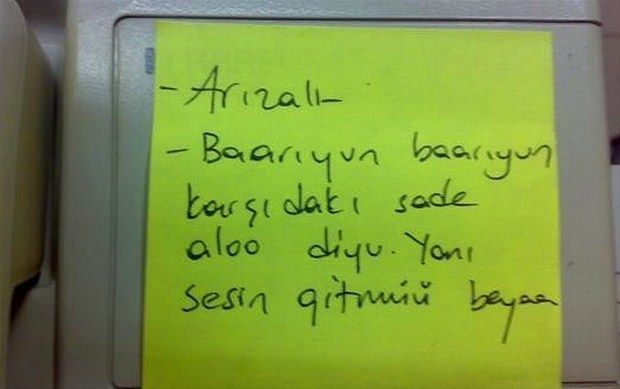 - Arızalı -
- Baarıyun baarıyun
karşıdakı sade
aloo diyu. Yanı
sesin gitmüü beyaa